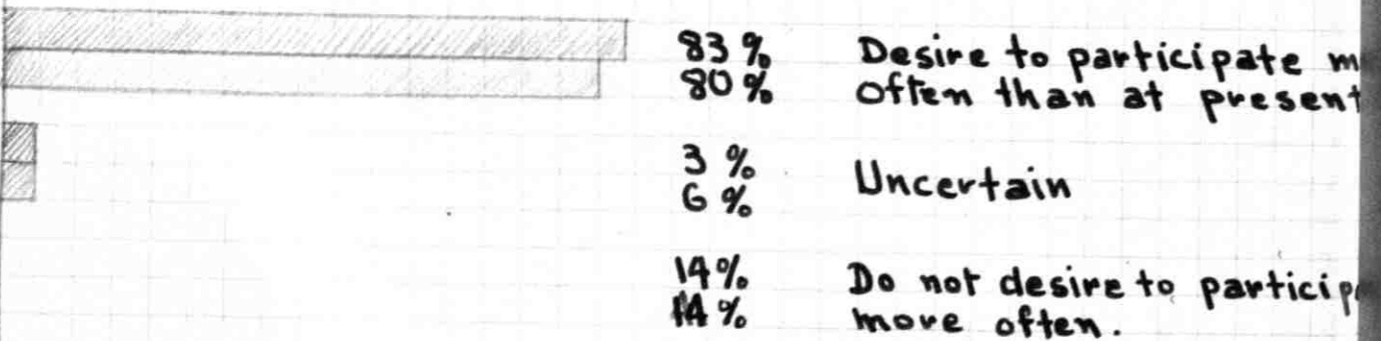 83% Desire to participate
80% often than at present
3%
6% Uncertain
14% Do not desire to
14% more often.